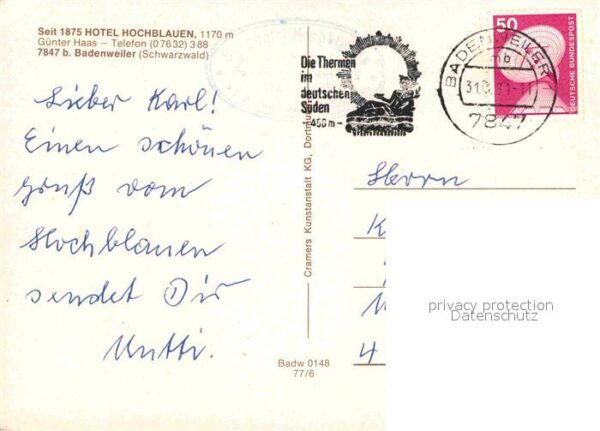 Seit 1875 HOTEL HOCHBLAUEN, 1170 m
Günter Haas – Telefon (07632) 388
7847 b. Badenweiler (Schwarzwald)
Lieber Karl!
Einen schönen
gruß vom
Hochblauen
sendet Dir
Mutti.
Badw 0148
77/6
Cramers Kunstanstalt KG, Dortmund
Die Thermen
im
deutschen
Süden
450 m –
BADENWEILER
7847
50
DEUTSCHE BUNDESPOST
Herrn
K
4
privacy protection
Datenschutz